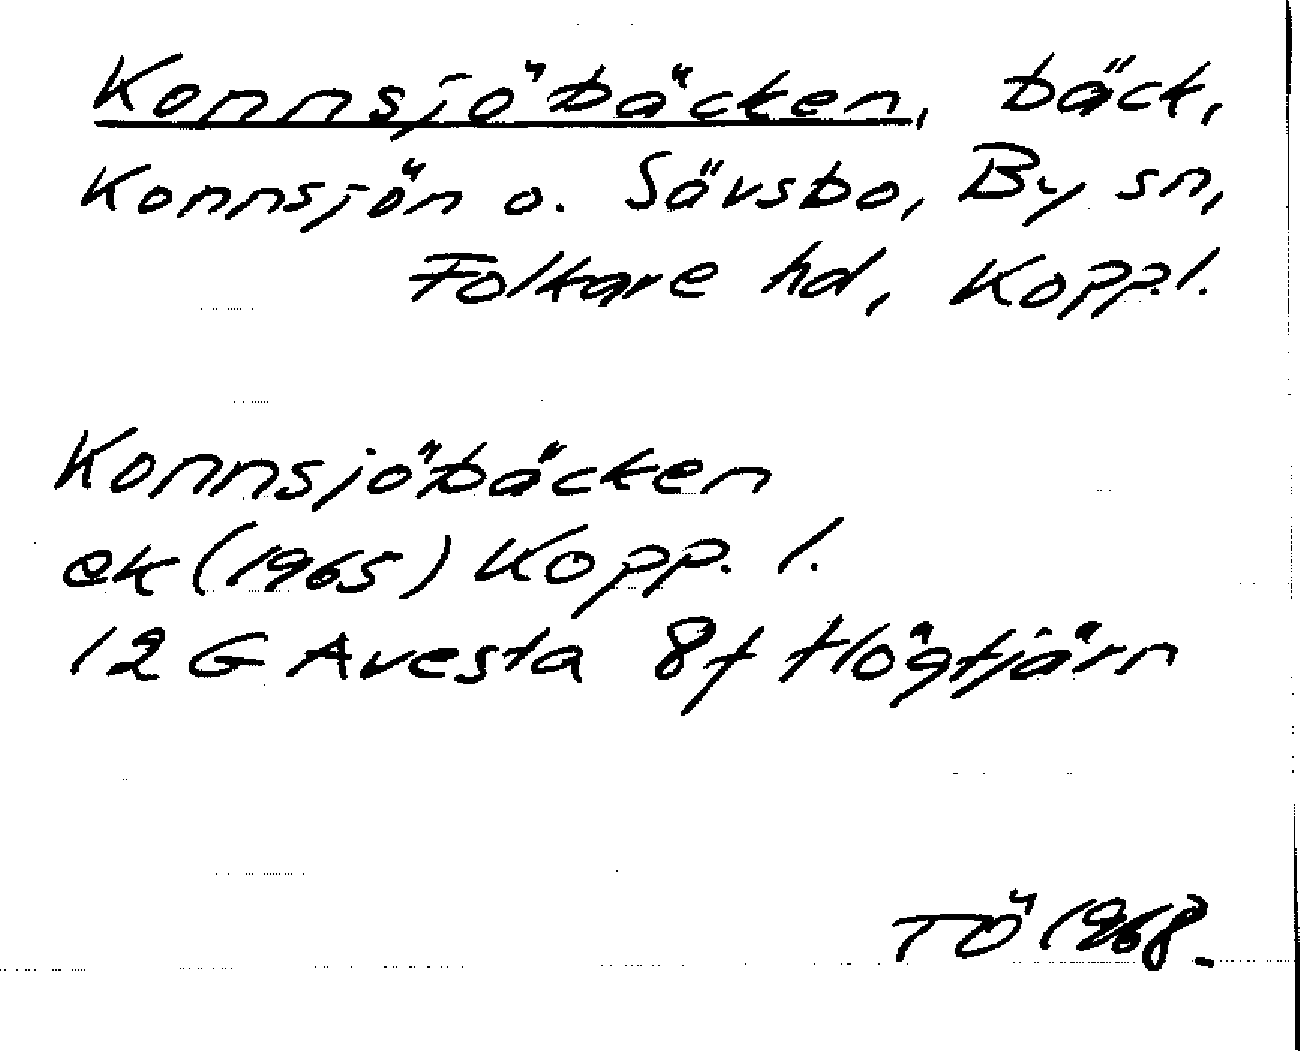 Konnsjöbäcken, bäck,
Konnsjön o. Sävsbo, By sn,
Folkare hd, Kopp.l.
Konnsjöbäcken
ek (1965) Kopp. l.
12 G Avesta 8f Högtjärn
TÖ 1968.